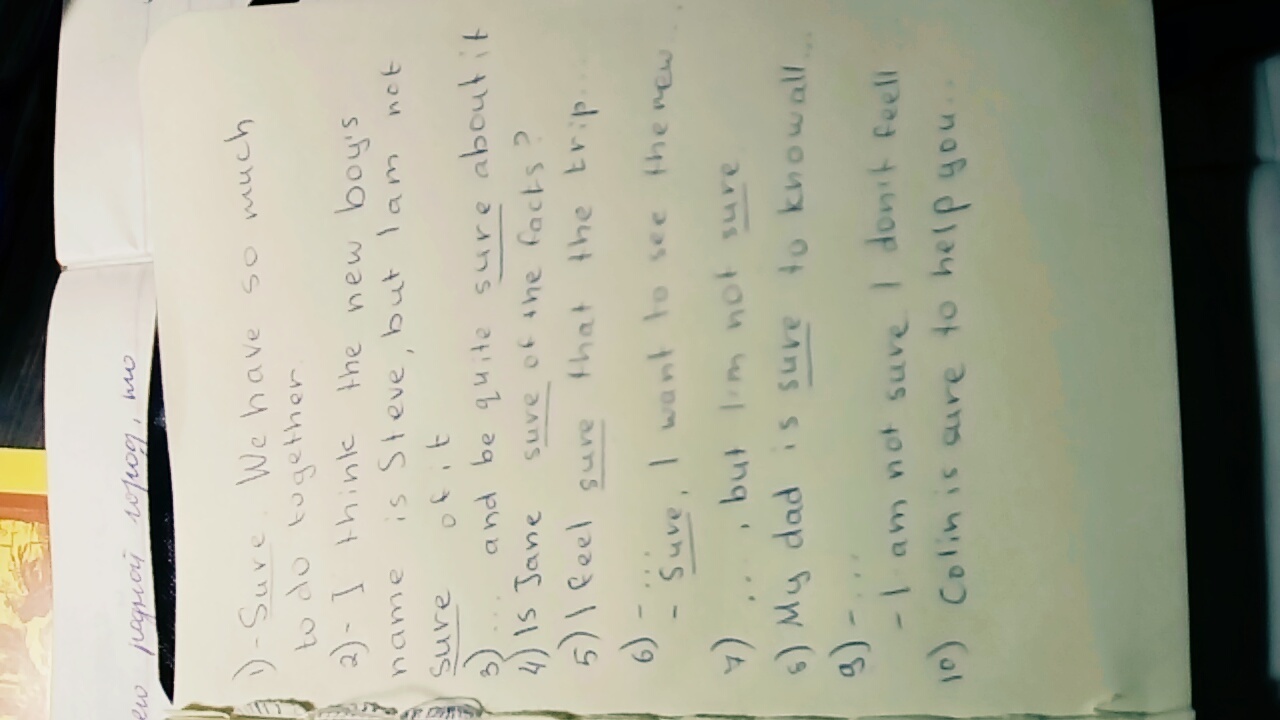 ем родной город, но
1) - Sure. We have so much
to do together.
2) - I think the new boy's
name is Steve, but I am not
sure of it
3) .... and be quite sure about it
4) Is Jane sure of the facts?
5) I feel sure that the trip...
6) - ....
- Sure, I want to see the new...
7) ...., but I'm not sure
8) My dad is sure to know all...
9) - ....
- I am not sure I don't feell
10) Colin is sure to help you...